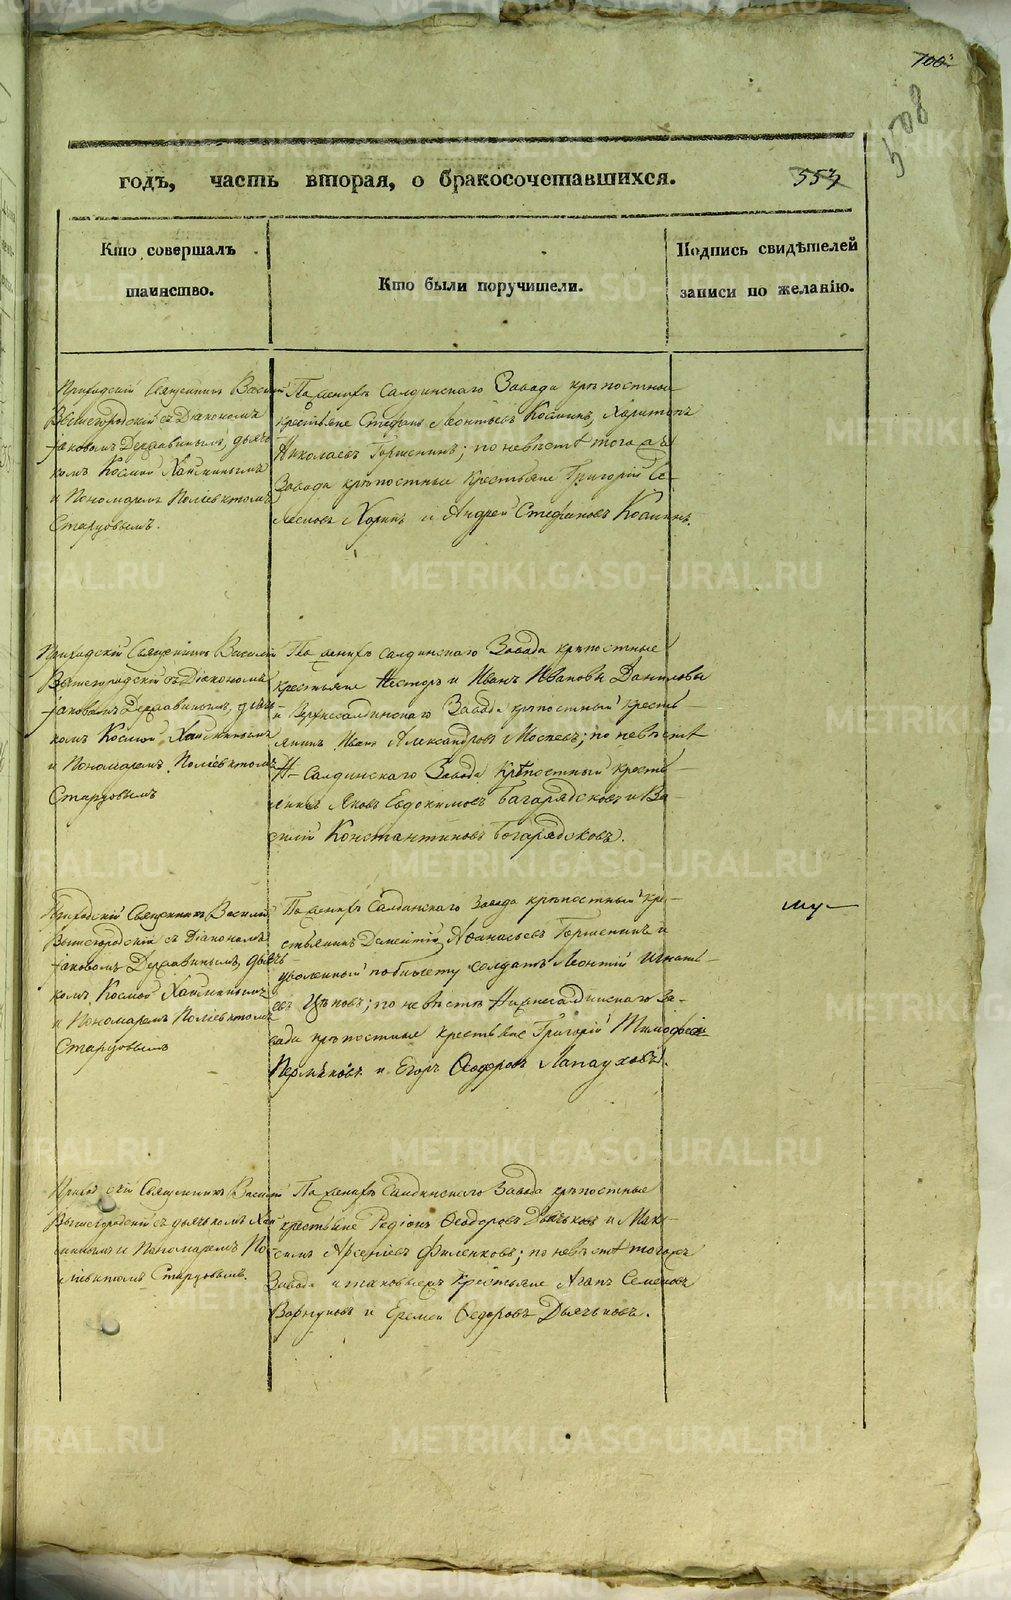 508
годъ, часть вторая, о бракосочетавшихся.
553
Кто совершалъ
таинство.
Кто были поручители.
Подпись свидѣтелей
записи по желанію.
Приходскій Священникъ Василій
Вышегородскій съ Діакономъ
Іаковомъ Державинымъ, дьяч
комъ Космою
и Пономаремъ Поліевктомъ
Старцовымъ.
По женихѣ Салдинскаго Завода крѣпостные
крестьяне Стефанъ Леонтьевъ Харитонъ
Николаевъ Горшенинъ; по невѣстѣ того жъ
Завода крѣпостные крестьяне Григорій
и Андрей Стефановъ
Приходскій Священникъ Василій
Вышегородскій съ Діакономъ
Іаковомъ Державинымъ, дьяч
комъ Космою
и Пономаремъ Поліевктомъ
Старцовымъ
По женихѣ Салдинскаго Завода крѣпостные
крестьяне Несторъ и Иванъ Ивановы Даниловы
и Верхнесалдинскаго Завода крѣпостный кресть-
янинъ Иванъ Александровъ по невѣстѣ
Н-Салдинскаго Завода крѣпостный кресть-
янинъ Яковъ Евдокимовъ Багарядсковъ и Ва-
силій Константиновъ Багарядсковъ.
Приходскій Священникъ Василій
Вышегородскій съ Діакономъ
Іаковомъ Державинымъ, дьячь
комъ Космою
и Пономаремъ Поліевктомъ
Старцовымъ
По женихѣ Салдинскаго Завода крѣпостный кре-
стьянинъ Дементій Афанасьевъ Горшенинъ и
уволенный по билету солдатъ Леонтій Игнать-
евъ по невѣстѣ Нижнесалдинскаго За-
вода крѣпостные крестьяне Григорій Тимофеевъ
Пермяковъ и Егоръ Феодоровъ Лапауховъ.
Приходскій Священникъ Василій
Вышегородскій съ дьячькомъ
и Пономаремъ По
ліевктомъ Старцовымъ.
По женихѣ Салдинскаго Завода крѣпостные
крестьяне Родіонъ Феодоровъ Дьячьковъ и Мак-
симъ Арсеніевъ Филенковъ; по невѣстѣ того жъ
Завода и таковыежъ крестьяне Агапъ Семеновъ
и Еремей Федоровъ Дьячьковъ.
METRIKI.GASO-URAL.RU